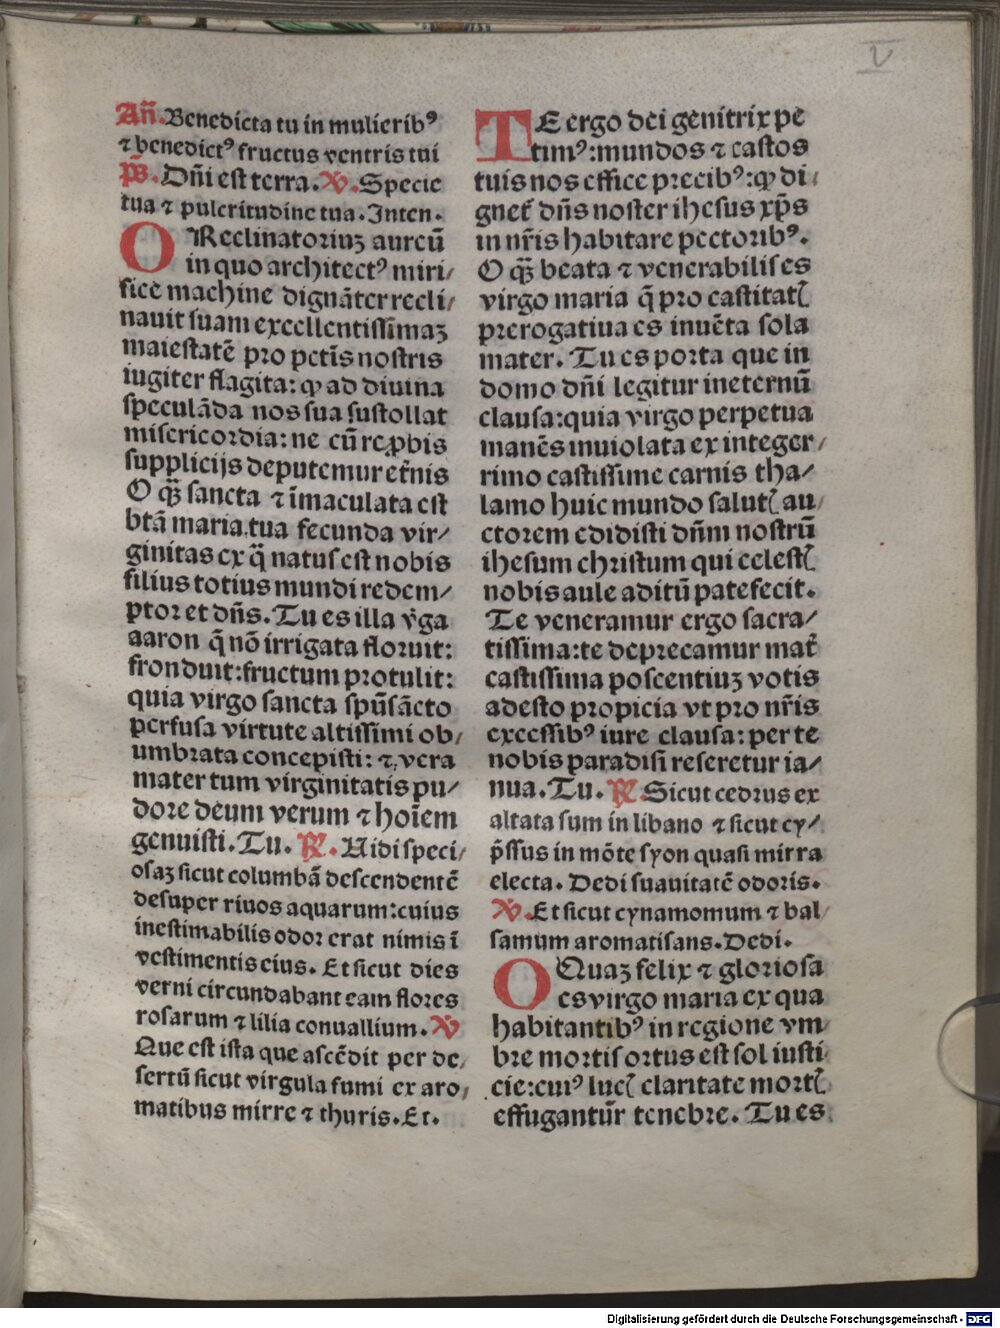 V
Añ. Benedicta tu in mulieribꝰ
⁊ benedictꝰ fructus ventris tui
p̄s. Dñi est terra. ℣. Specie
tua ⁊ pulcritudine tua. Inten.
O Reclinatoriuꝫ aureū
in quo architectꝰ miri/
fice machine dignāter recli/
nauit suam excellentissimaꝫ
maiestatē pro petīs nostris
iugiter flagita: ꝙ ad diuina
speculāda nos sua sustollat
misericordia: ne cū reꝓbis
supplicijs deputemur et̄nis
O q̄ꝫ sancta ⁊ īmaculata est
btā maria tua fecunda vir/
ginitas ex q̄ natus est nobis
filius totius mundi redem/
ptor et dñs. Tu es illa v̄ga
aaron q̄ nō irrigata floruit:
fronduit: fructum protulit:
quia virgo sancta spūsācto
perfusa virtute altissimi ob/
umbrata concepisti: ⁊ vera
mater tum virginitatis pu/
dore deum verum ⁊ hoīem
genuisti. Tu. ℟. Uidi speci/
osaꝫ sicut columbā descendentē
desuper riuos aquarum: cuius
inestimabilis odor erat nimis ī
vestimentis eius. Et sicut dies
verni circundabant eam flores
rosarum ⁊ lilia conuallium. ℣
Que est ista que ascēdit per de/
sertū sicut virgula fumi ex aro/
matibus mirre ⁊ thuris. Et.
TE ergo dei genitrix pe
timꝰ: mundos ⁊ castos
tuis nos effice precibꝰ: ꝙ di/
gnet᷑ dñs noster ihesus xp̄s
in nr̄is habitare pectoribꝰ.
O q̄ꝫ beata ⁊ venerabilis es
virgo maria q̄ pro castitatꝭ
prerogatiua es inuēta sola
mater. Tu es porta que in
domo dñi legitur ineternū
clausa: quia virgo perpetua
manēs inuiolata ex integer/
rimo castissime carnis tha/
lamo huic mundo salutꝭ au/
ctorem edidisti dñm nostrū
ihesum christum qui celestꝭ
nobis aule aditū patefecit.
Te veneramur ergo sacra/
tissima: te deprecamur mat᷑
castissima poscentiuꝫ votis
adesto propicia vt pro nr̄is
excessibꝰ iure clausa: per te
nobis paradisi reseretur ia/
nua. Tu. ℟. Sicut cedrus ex
altata sum in libano ⁊ sicut cy/
p̄ssus in mōte syon quasi mirra
electa. Dedi suauitatē odoris.
℣. Et sicut cynamomum ⁊ bal/
samum aromatisans. Dedi.
O Quaꝫ felix ⁊ gloriosa
es virgo maria ex qua
habitantibꝰ in regione vm
bre mortis ortus est sol iusti/
cie: cuiꝰ lucꝭ claritate mortꝭ
effugantur̄ tenebre. Tu es
Digitalisierung gefördert durch die Deutsche Forschungsgemeinschaft - DFG